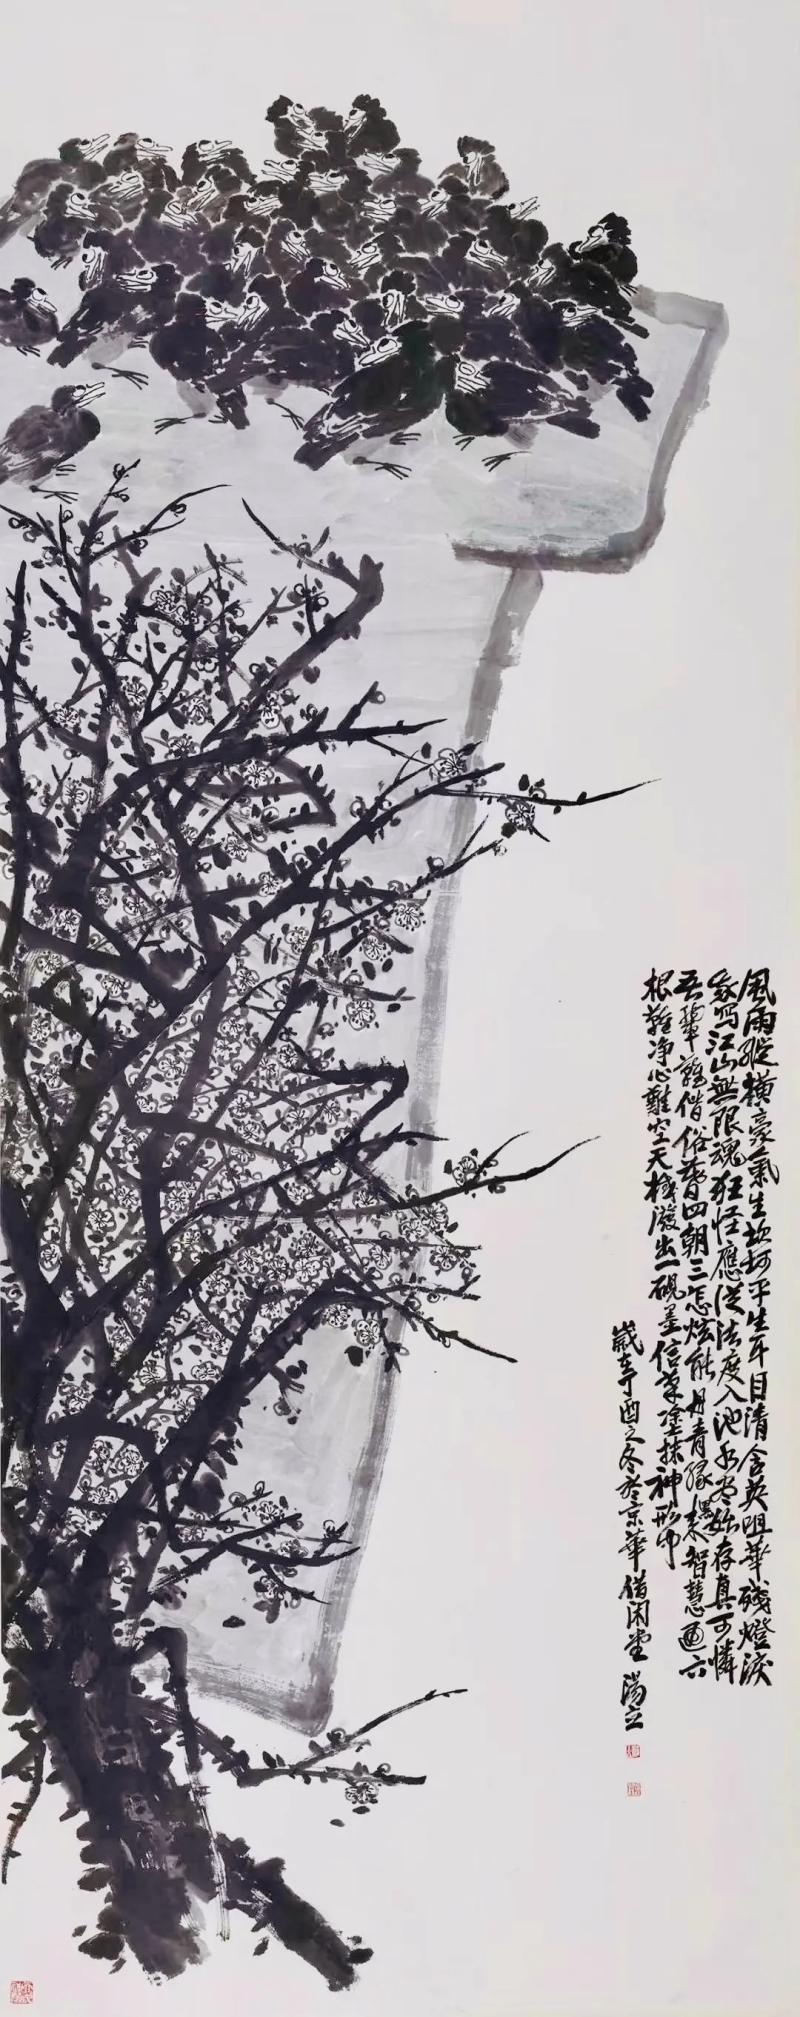 風雨縱橫豪氣生坎坷平生耳目清含英咀華殘燈淚
写江山無限魂狂怪應從法度入池水始存真可憐
吾輩難偕俗暮四朝三怎炫能丹青緣來智慧通六
根難净心難空天機潑出一硯墨信筆塗抹神形中
歲在丁酉之冬於京華借闲堂 湯立